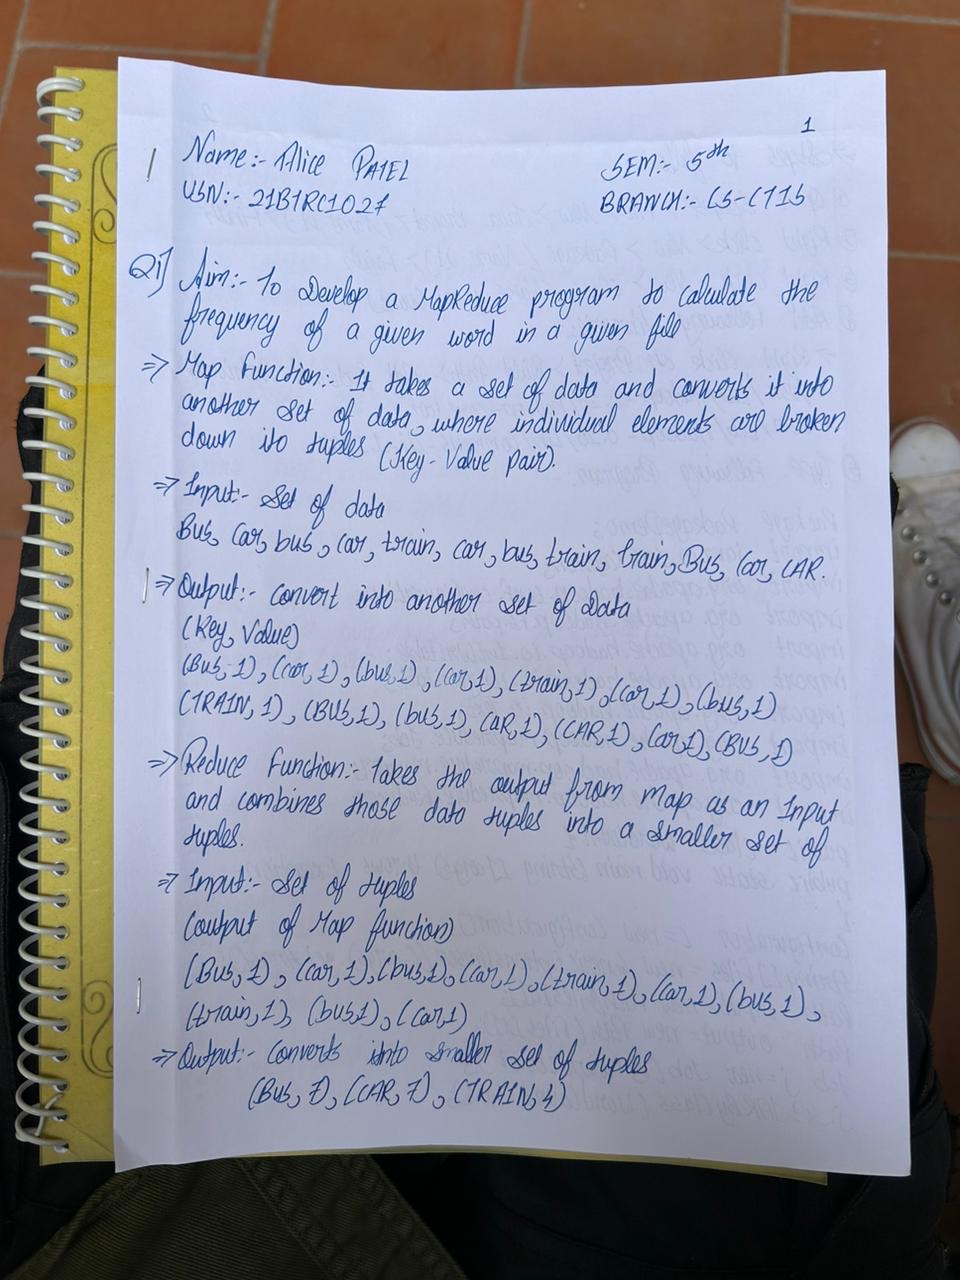 1
Name:- Alice PATEL
SEM:- 5th
USN:- 21BTRC1027
BRANCH:- CS-CTIS
Q1] Aim:- To Develop a MapReduce program to calculate the
frequency of a given word in a given file
=> Map Function:- It takes a set of data and converts it into
another set of data, where individual elements are broken
down ito tuples (Key-Value pair).
=> Input:- Set of data
Bus, Car, bus, car, train, car, bus, train, train, Bus, Car, CAR.
=> Output:- convert into another set of Data
(Key, Value)
(Bus, 1), (car, 1), (bus, 1), (car, 1), (train, 1), (car, 1), (bus, 1)
(TRAIN, 1), (BUS, 1), (bus, 1), CAR, 1), (CAR, 1), (car, 1), (BUS, 1)
=> Reduce Function:- Takes the output from Map as an Input
and combines those data tuples into a smaller set of
tuples.
=> Input:- Set of tuples
(output of Map function)
(Bus, 1), (car, 1), (bus, 1), (car, 1), (train, 1), (car, 1), (bus, 1),
(train, 1), (bus, 1), (car, 1)
=> Output:- Converts into smaller set of tuples
(Bus, 7), (CAR, 7), (TRAIN, 4)